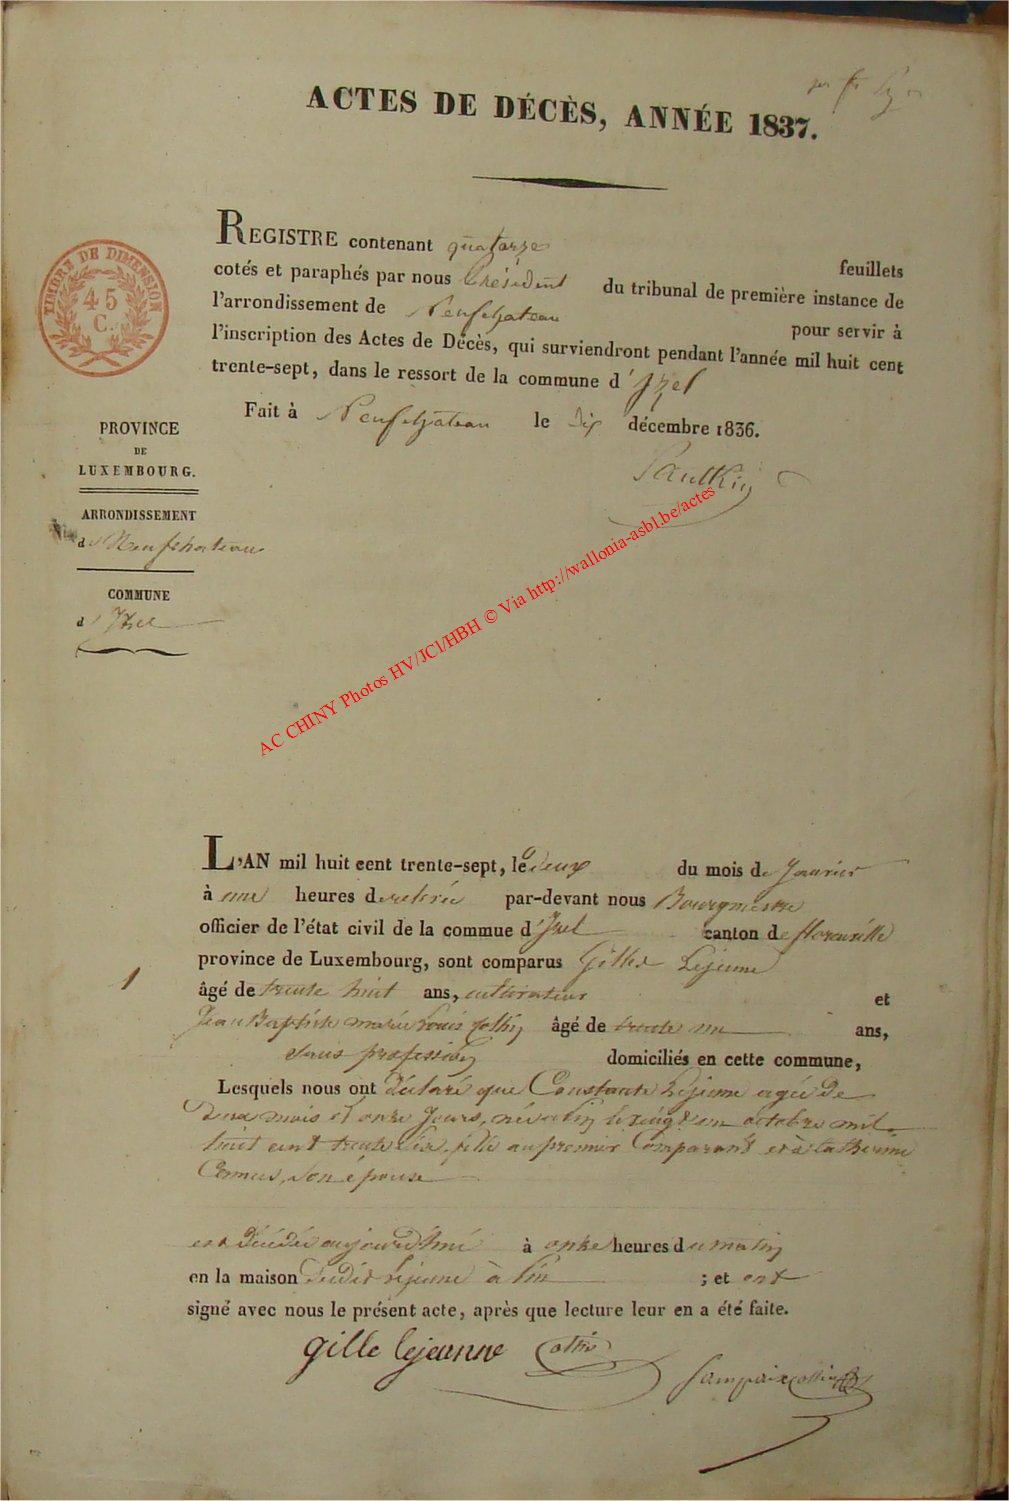 ACTES DE DÉCÈS, ANNÉE 1837.
REGISTRE contenant quatorze feuillets
cotés et paraphés par nous Président du tribunal de première instance de
l'arrondissement de Neufchateau pour servir à
l'inscription des Actes de Décès, qui surviendront pendant l'année mil huit cent
trente-sept, dans le ressort de la commune d'Izel
Fait à Neufchateau le dix décembre 1836.
TIMBRE DE DIMENSION
45
C.
PROVINCE
DE
LUXEMBOURG.
ARRONDISSEMENT
de Neufchateau
COMMUNE
d'Izel
AC CHINY Photos HV/JCl/HBH © Via http://wallonia-asbl.be/actes
L'AN mil huit cent trente-sept, le deux du mois de Janvier
à une heures de relevée par-devant nous Bourgmestre
officier de l'état civil de la commue d'Izel canton de florenville
province de Luxembourg, sont comparus Gilles Lejeune
1
âgé de trente huit ans, cultivateur et
Jean Baptiste marie Louis Collin âgé de trente un ans,
sans profession domiciliés en cette commune,
Lesquels nous ont déclaré que Constante Lejeune agée de
deux mois et onze Jours, née le vingt un octobre mil
huit cent trente six, fille au premier Comparant et à Catherine
son épouse
est décédée aujourd'hui à onze heures du matin
en la maison dudit Lejeune à Pin ; et ont
signé avec nous le présent acte, après que lecture leur en a été faite.
gille lejeunne Collin